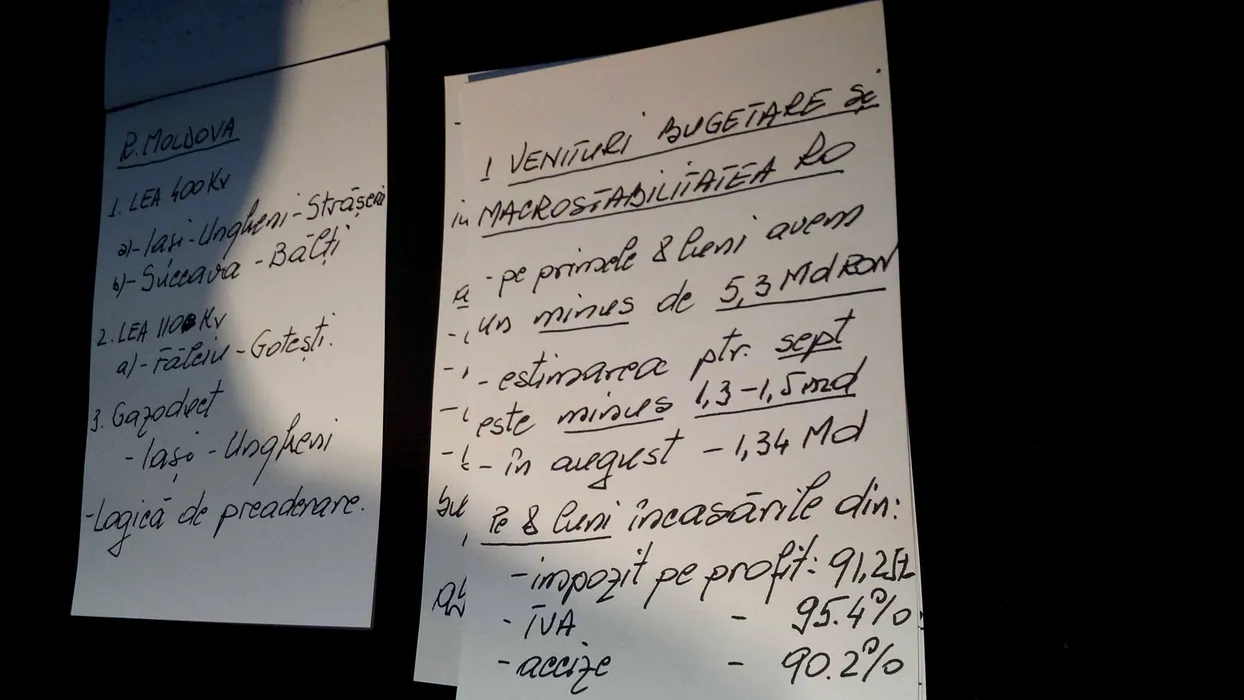 R. MOLDOVA
1. LEA 400Kv
a)-Iași-Ungheni-Strășeni
b)-Suceava-Bălți
2. LEA 110Kv
a)-Fălciu-Gotești.
3. Gazoduct
-Iași-Ungheni
-Logică de preaderare.
I VENITURI BUGETARE și
MACROSTABILITATEA RO
- pe primele 8 luni avem
un minus de 5,3 Md RON
- estimarea ptr. sept
este minus 1,3-1,5 md
- în august - 1,34 Md
Pe 8 luni încasările din:
- impozit pe profit: 91,2
- TVA - 95.4%
- accize - 90.2%